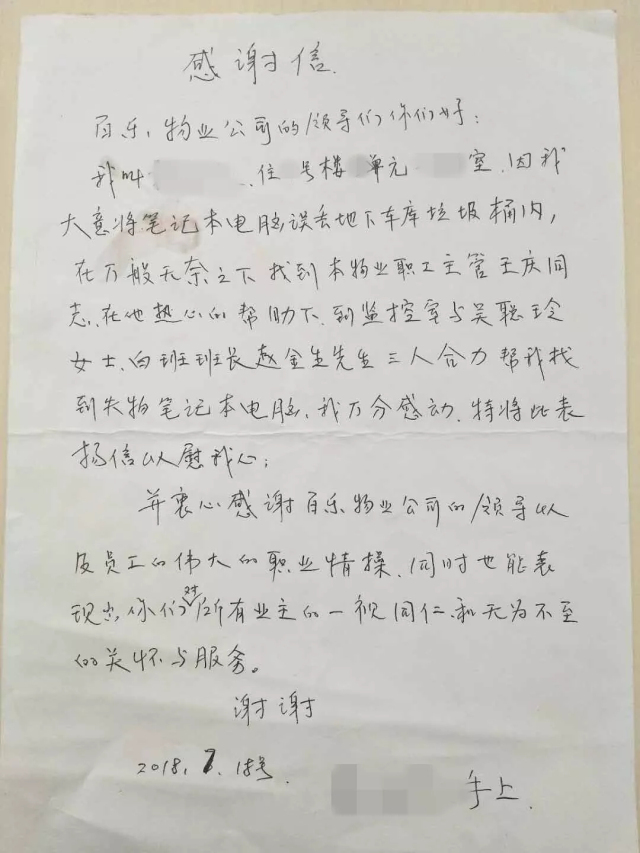 感谢信.
百乐,物业公司的领导们你们好:
我叫 .住 号楼 单元 室.因我
大意将笔记本电脑误丢地下车库垃圾桶内,
在万般无奈之下找到本物业职工主管王庆同
志.在他热心的帮助下.到监控室与吴聪玲
女士.白班班长赵金生先生三人合力帮我找
到失物笔记本电脑.我万分感动.特将此表
扬信以慰我心;
并衷心感谢百乐物业公司的领导以
及员工的伟大的职业情操.同时也能表
现出你们对所有业主的一视同仁.和无为不至
的关怀与服务。
谢谢
2018.7.18号. 手上.